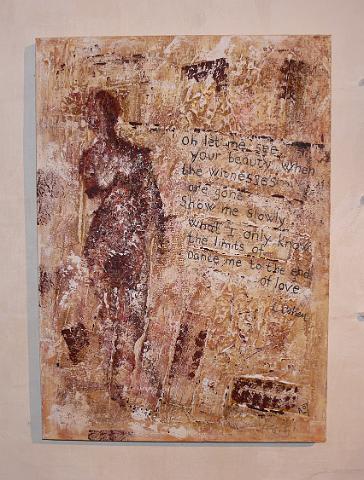 Oh let me see
your beauty when
the witnesses
are gone
Show me slowly
what I only know
the limits of
Dance me to the end
of love
L Cohen